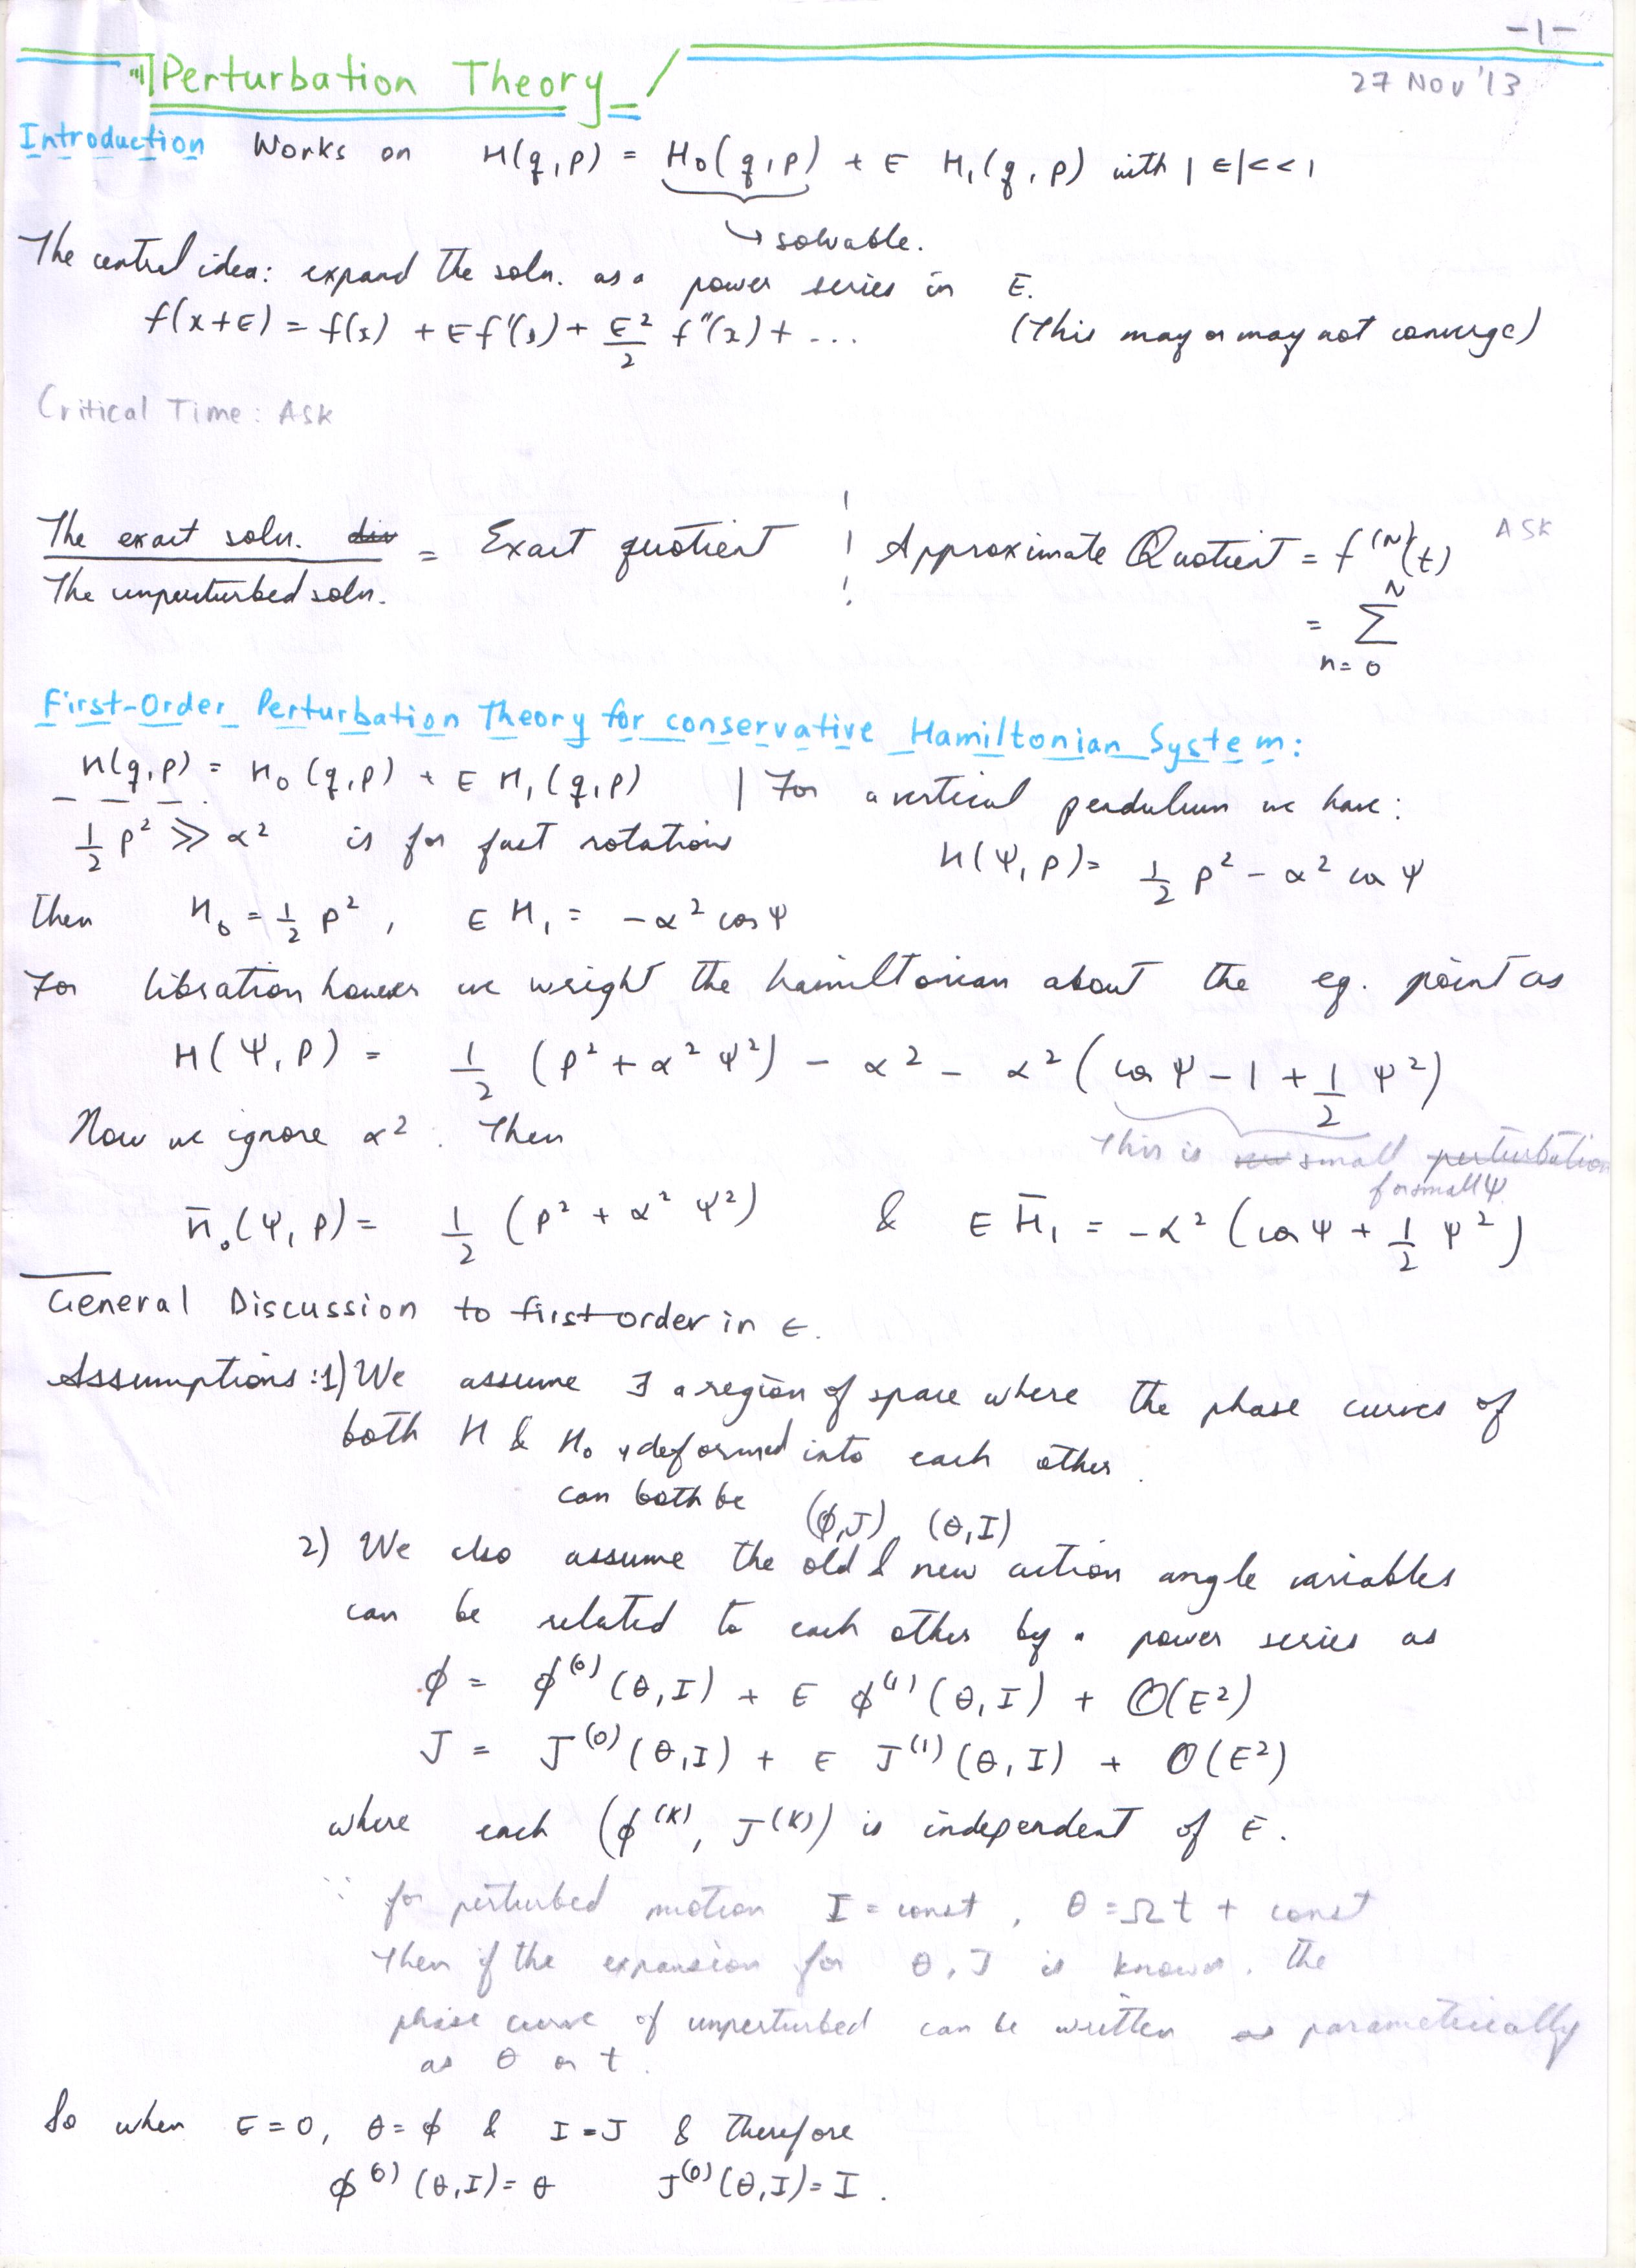 -1-
Perturbation Theory
27 Nov '13
Introduction Works on H(q,p) = H₀(q,p) + ϵ H₁(q,p) with |ϵ|<<1
↳ solvable.
The central idea: expand the soln. as a power series in ϵ.
f(x+ϵ) = f(x) + ϵf'(x) + ϵ²/2 f''(x) + ... (This may or may not converge)
Critical Time: ASK
The exact soln. / The unperturbed soln. = Exact quotient ¦ Approximate Quotient = f⁽ᴺ⁾(t) ASK
= Σ_{n=0}^{N}
First-Order Perturbation Theory for conservative Hamiltonian System:
H(q,p) = H₀(q,p) + ϵ H₁(q,p) | For a vertical pendulum we have:
½ p² ≫ α² is for fast rotations H(ψ,p) = ½ p² - α² cos ψ
Then H₀ = ½ p², ϵ H₁ = -α² cos ψ
For libration however we wright the hamiltonian about the eq. point as
H(ψ,p) = ½ (p² + α² ψ²) - α² - α² (cos ψ - 1 + ½ ψ²)
Now we ignore α². Then
This is small perturbation
for small ψ
H̄₀(ψ,p) = ½ (p² + α² ψ²) & ϵ H̄₁ = -α² (cos ψ + ½ ψ²)
General Discussion to first order in ϵ.
Assumptions: 1) We assume ∃ a region of space where the phase curves of
both H & H₀ deformed into each other.
can both be
(ϕ,J) (θ,I)
2) We also assume the old & new action angle variables
can be related to each other by a power series as
ϕ = ϕ⁽⁰⁾(θ,I) + ϵ ϕ⁽¹⁾(θ,I) + O(ϵ²)
J = J⁽⁰⁾(θ,I) + ϵ J⁽¹⁾(θ,I) + O(ϵ²)
where each (ϕ⁽ᴷ⁾, J⁽ᴷ⁾) is independent of ϵ.
∵ for perturbed motion I = const, θ = Ωt + const
Then if the expansion for θ, J is known, the
phase curve of unperturbed can be written parametrically
as θ or t.
So when ϵ=0, θ=ϕ & I=J & therefore
ϕ⁽⁰⁾(θ,I) = θ J⁽⁰⁾(θ,I) = I.